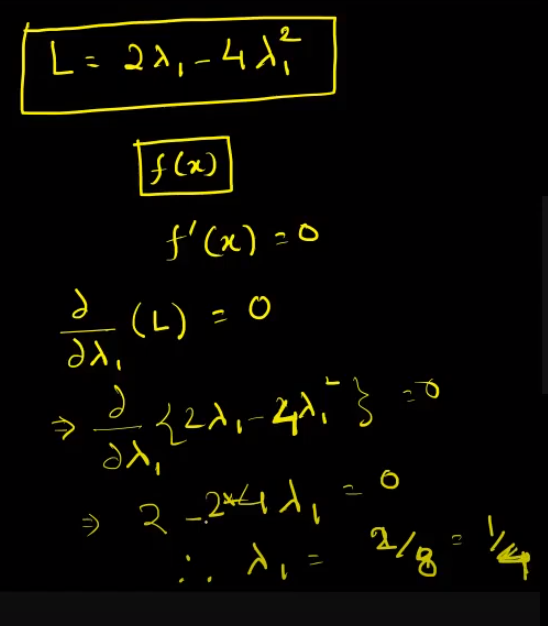 L = 2λ₁ - 4λ₁²
f(x)
f'(x) = 0
∂/∂λ₁ (L) = 0
⇒ ∂/∂λ₁ {2λ₁ - 4λ₁²} = 0
⇒ 2 - 2*4λ₁ = 0
∴ λ₁ = 2/8 = 1/4